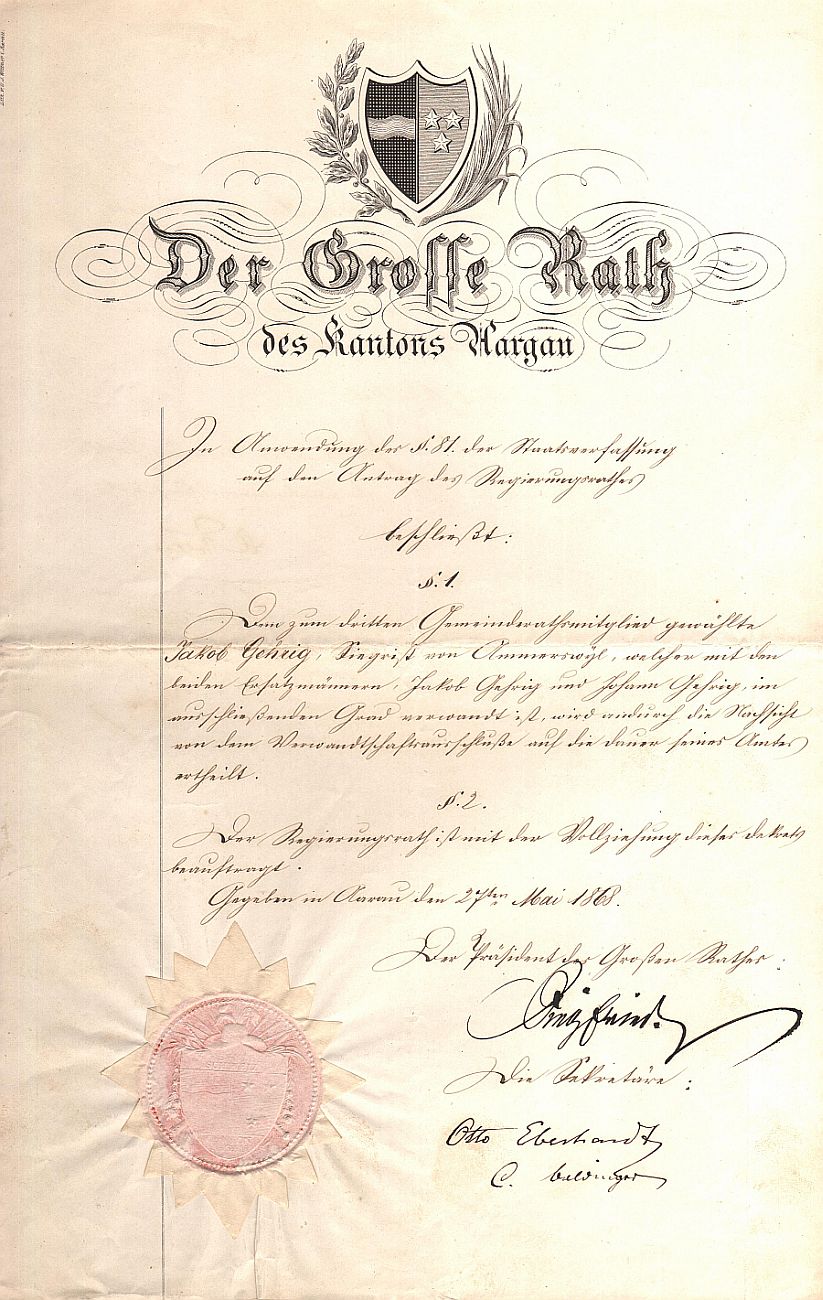 Der Grosse Rath
des Kantons Aargau
In Anwendung des §. 81. der Staatsverfassung
auf den Antrag des Regierungsrathes
beschließt:
§. 1.
Dem zum dritten Gemeinderathsmitglied gewählte
Jakob Gehrig, Siegrist von Ammerswyl, welcher mit den
beiden Ersatzmännern, Jakob Gehrig und Johann Gehrig, im
ausschließenden Grad verwandt ist, wird andurch die Nachsicht
von dem Verwandtschaftsausschluße auf die dauer seines Amtes
ertheilt.
§. 2.
Der Regierungsrath ist mit der Vollziehung dieses dekrets
beauftragt.
Gegeben in Aarau den 27ten Mai 1868.
Der Präsident des Großen Rathes:
Die Sekretäre:
Otto Eberhardt
C.